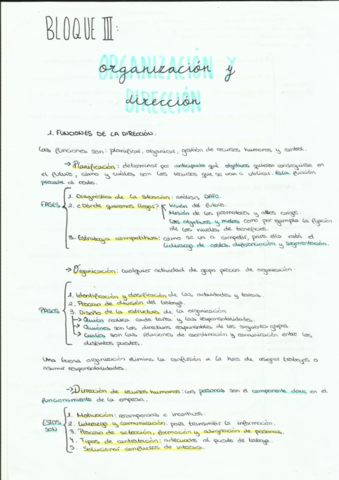 BLOQUE III:
ORGANIZACIÓN Y
organización y
DIRECCIÓN
dirección
1. FUNCIONES DE LA DIRECCIÓN.
Las funciones son: planificar, organizar, gestión de recursos humanos y control.
→ Planificación: determinar por anticipado qué objetivos quieren conseguirse en
el futuro, cómo y cuáles son los recursos que se van a utilizar. Esta función
al resto.
FASES
1. Diagnóstico de la situación: análisis DAFO.
2. ¿Dónde queremos llegar?
Misión del futuro.
Mirada de los y altos cargos.
Los objetivos y metas como por ejemplo la fijación
de los niveles de beneficios.
3. Estrategia competitiva: cómo se va a competir, para ello está el
liderazgo de costes, diferenciación y segmentación.
→ Organización: cualquier actividad de grupo precisa de organización:
FASES
1. Identificación y clasificación de las actividades y tareas.
2. Proceso de división del trabajo.
3. Diseño de la estructura de la organización.
→ Quién realiza cada tarea y sus responsabilidades.
→ Quiénes son los directivos responsables de los siguientes grupos.
→ Cuáles son las relaciones de coordinación y comunicación entre los
distintos puestos.
Una buena organización elimina la confusión a la hora de asignar trabajos o
asumir responsabilidades.
→ Dirección de recursos humanos: las personas son el componente clave en el
funcionamiento de la empresa.
ESTOS
SON
1. Motivación: recompensas e incentivos.
2. Liderazgo y comunicación: para transmitir la información.
3. Proceso de selección, formación y de personas.
4. Tipos de contratación: adecuados al puesto de trabajo.
5. Solucionar conflictos de intereses.